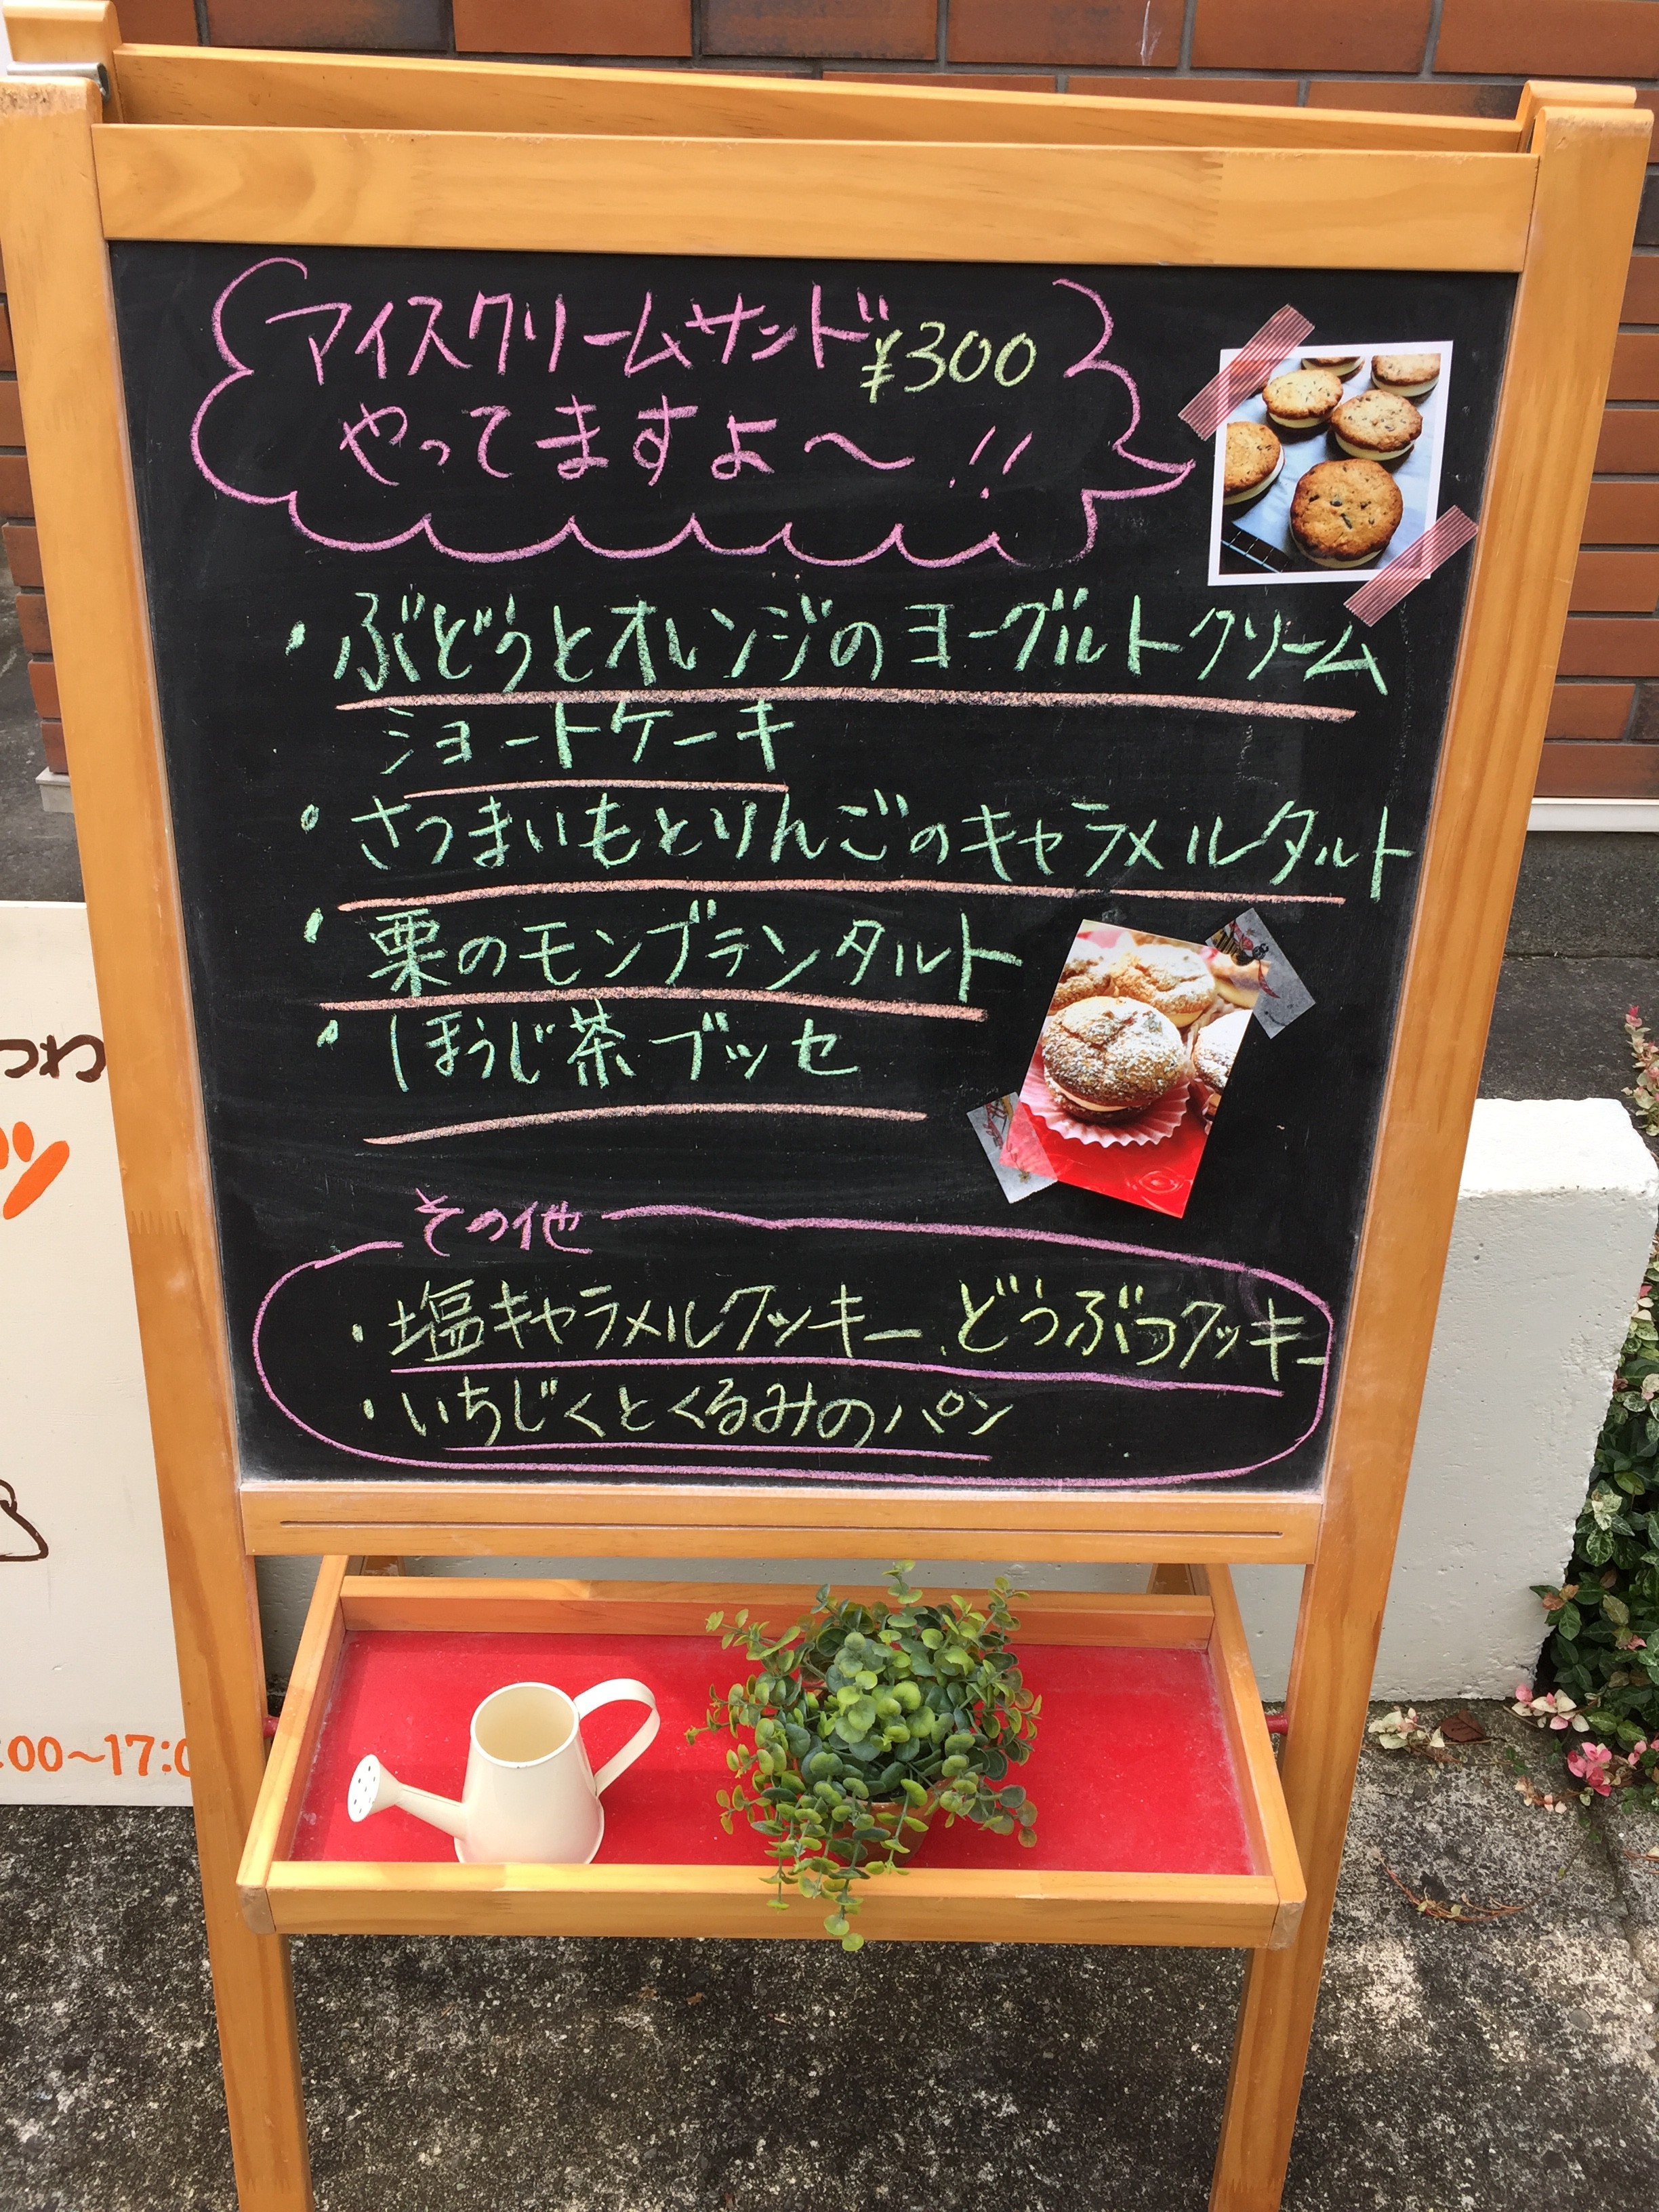 アイスクリームサンド ¥300
やってますよ〜!!
・ぶどうとオレンジのヨーグルトクリーム
ショートケーキ
・さつまいもとりんごのキャラメルタルト
・栗のモンブランタルト
・ほうじ茶ブッセ
その他
・塩キャラメルクッキー、どうぶつクッキー
・いちじくとくるみのパン
つわ
ツ
:00〜17:0